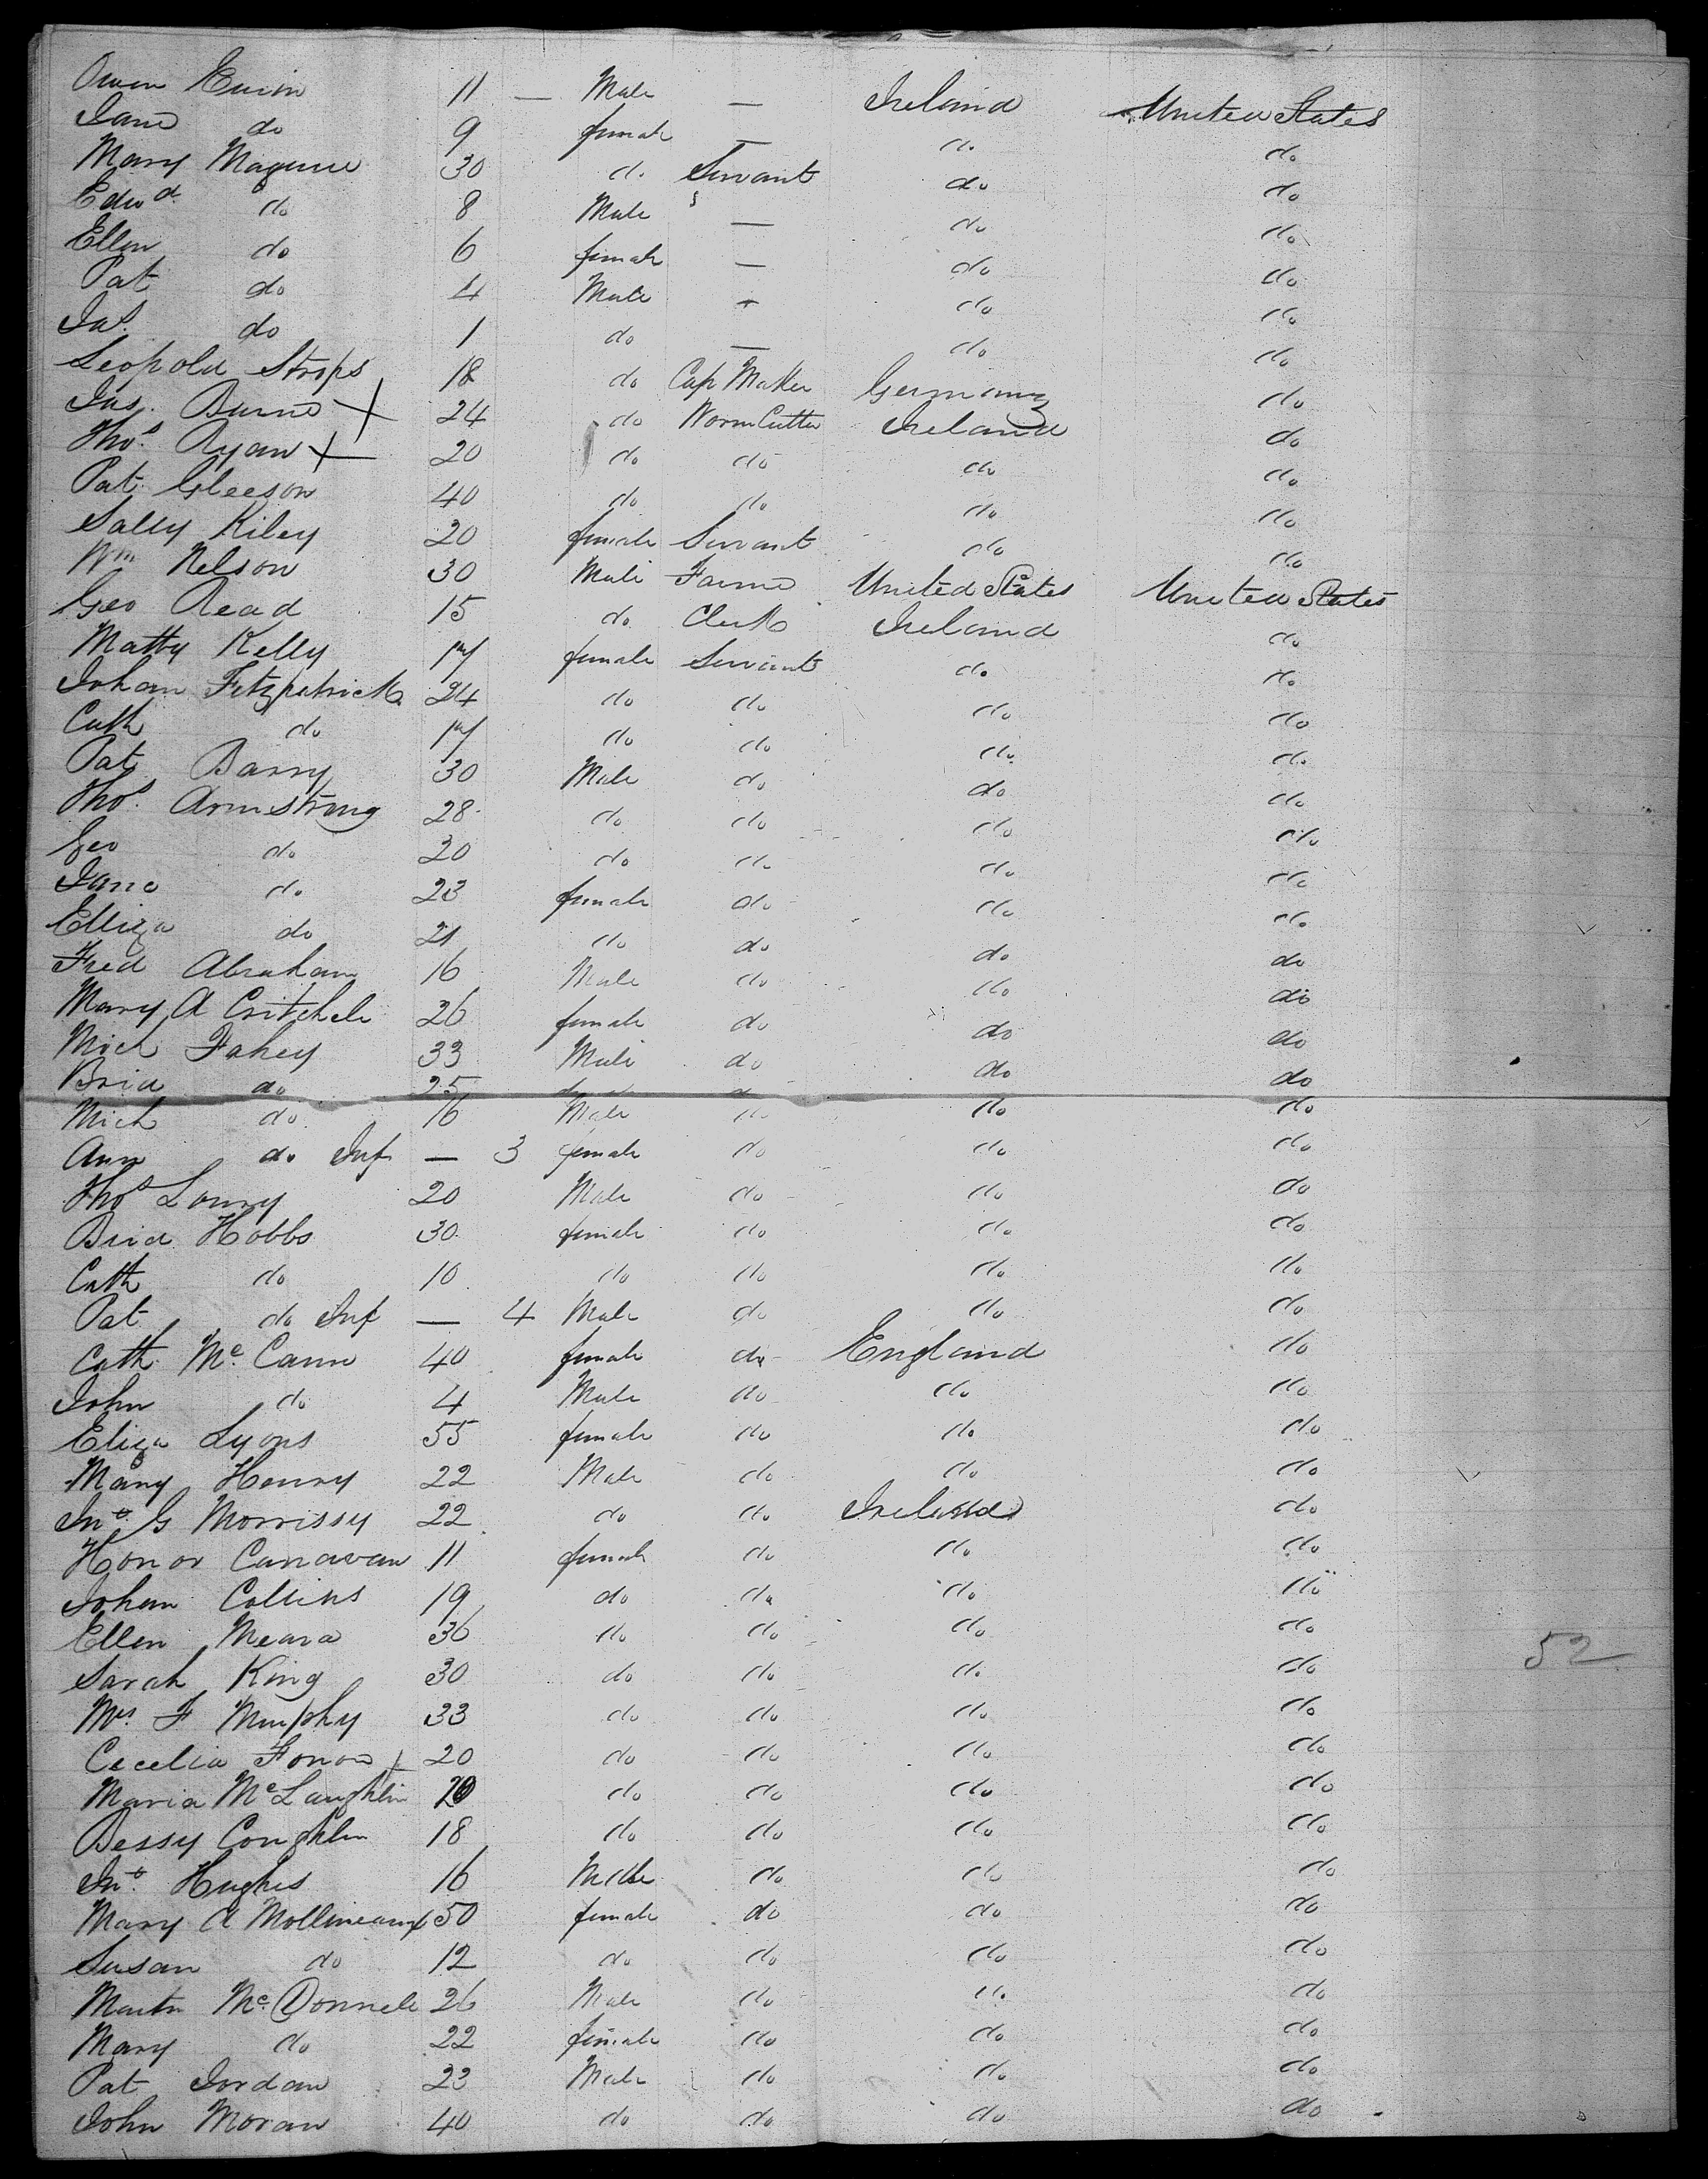 Owen 11 — Male — Ireland United States
Jane do 9 female — do do
Mary Maguire 30 do Servant do do
Edwd. do 8 Male — do do
Ellen do 6 female — do do
Pat do 4 Male — do do
Jas. do 1 do — do do
Leopold Strops 18 do Cap Maker Germany do
Jas. Burns + 24 do Worm Cutter Ireland do
Thos. Ryan + 20 do do do do
Pat Gleeson 40 do do do do
Sally Kiley 20 female Servant do do
Wm Nelson 30 Male Farmer United States United States
Geo Read 15 do Clerk Ireland do
Matty Kelly 17 female Servant do do
Johan Fitzpatrick 24 do do do do
Cath do 17 do do do do
Pat Barry 30 Male do do do
Thos. Armstrong 28 do do do do
Geo do 20 do do do do
Jane do 23 female do do do
Elliza do 21 do do do do
Fred Abraham 16 Male do do do
Mary A Critchele 26 female do do do
Mich Fahey 33 Male do do do
Brid do 25 do do do
Mich do 16 Male do do do
Ann do Inf — 3 female do do do
Thos Lowry 20 Male do do do
Brid Hobbs 30 female do do do
Cath do 10 do do do do
Pat do Inf — 4 Male do do do
Cath Mc Cann 40 female do England do
John do 4 Male do do do
Eliza Lyons 55 female do do do
Mary Henry 22 Male do do do
Jno. G Morrissy 22 do do Ireland do
Honor Canavan 11 female do do do
Johan Collins 19 do do do do
Ellen Meara 36 do do do do
52
Sarah King 30 do do do do
Mrs. F Murphy 33 do do do do
Cecelia + 20 do do do do
Maria McLaughlin 20 do do do do
Bessy Coughlin 18 do do do do
Jno. Hughes 16 Male do do do
Mary A Mollineaux 50 female do do do
Susan do 12 do do do do
Martn Mc Donnele 26 Male do do do
Mary do 22 female do do do
Pat Jordan 23 Male do do do
John Moran 40 do do do do